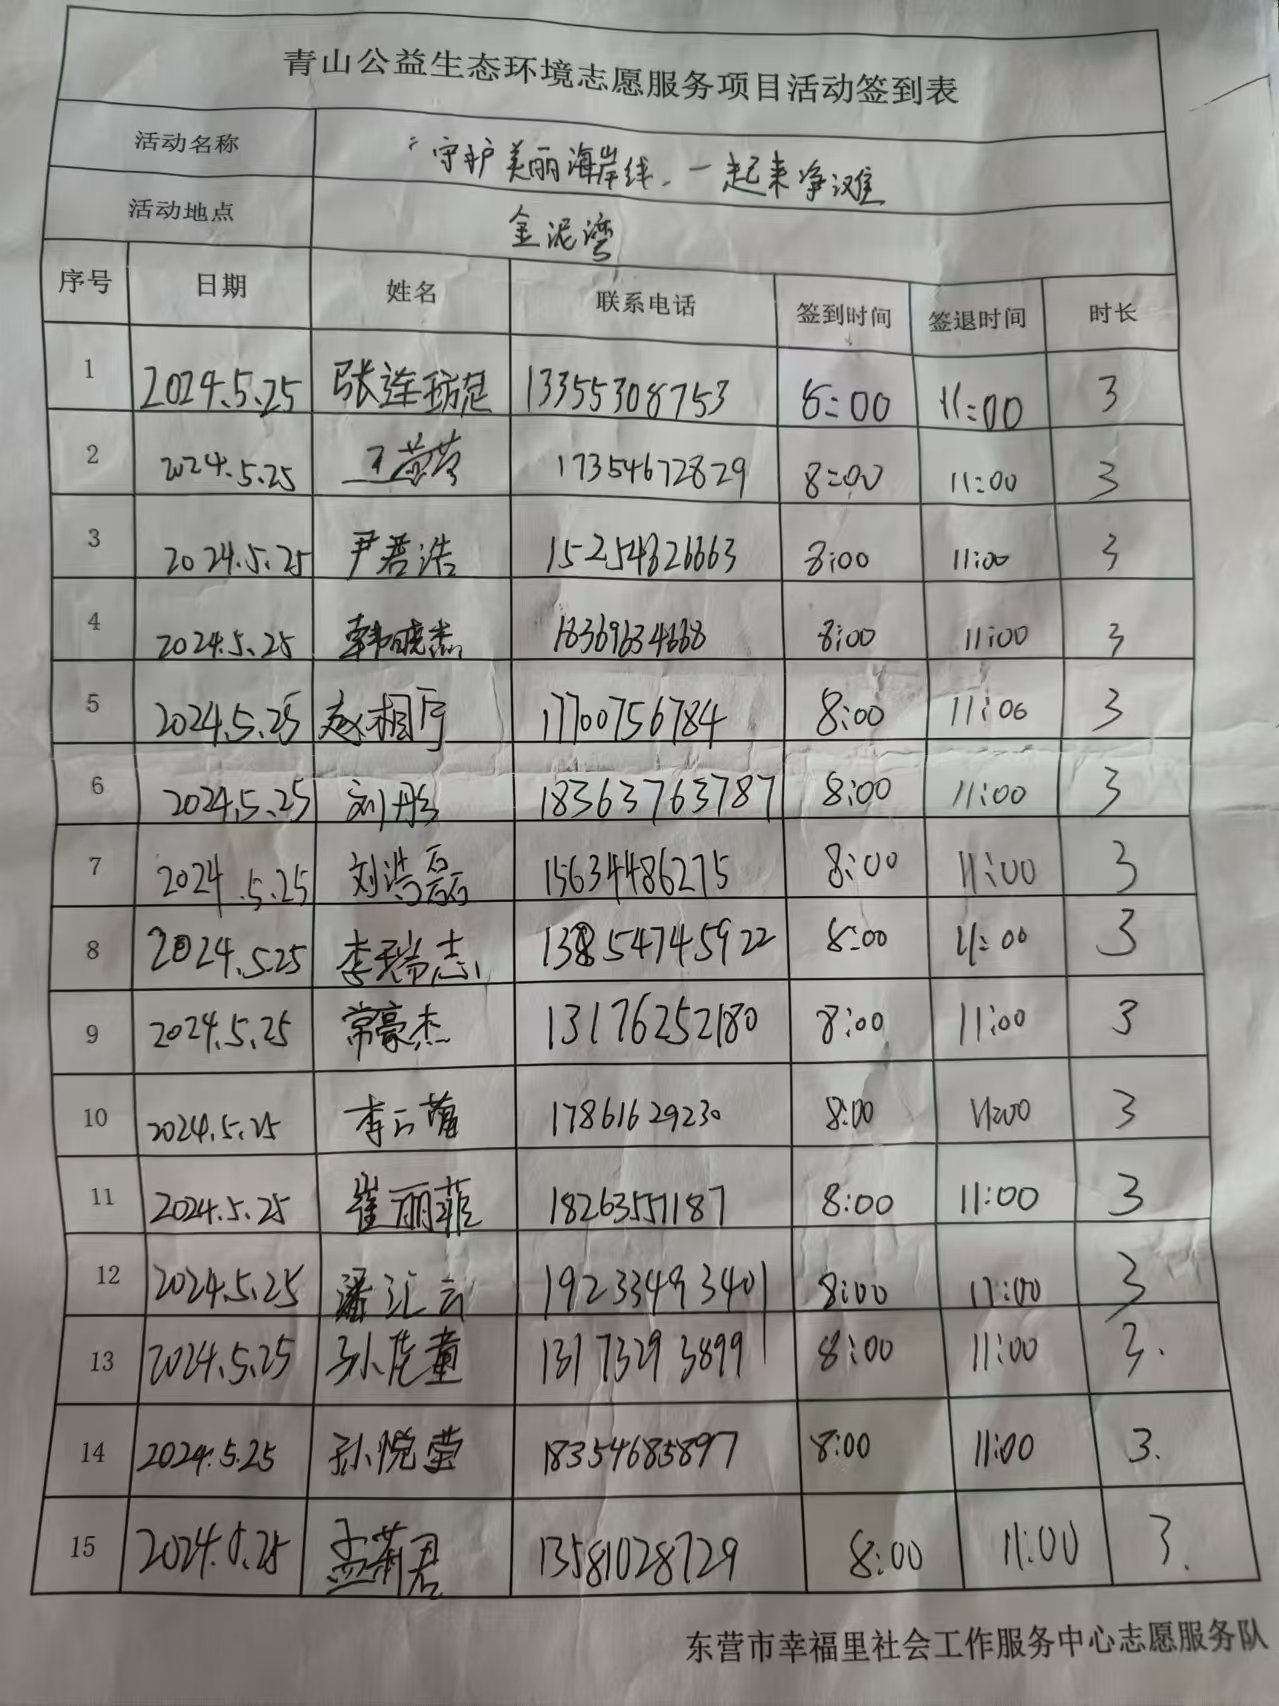 青山公益生态环境志愿服务项目活动签到表
活动名称 "守护美丽海岸线,一起来净滩
活动地点 金泥湾
序号 日期 姓名 联系电话 签到时间 签退时间 时长
1 2024.5.25 张连 13355308753 8:00 11:00 3
2 2024.5.25 王 17354672829 8:00 11:00 3
3 2024.5.25 尹君浩 15254826663 8:00 11:00 3
4 2024.5.25 韩晓杰 18369634668 8:00 11:00 3
5 2024.5.25 赵相宇 17700756784 8:00 11:00 3
6 2024.5.25 刘彤 18363763787 8:00 11:00 3
7 2024.5.25 刘浩磊 15634486275 8:00 11:00 3
8 2024.5.25 李瑞志 13854745922 8:00 11:00 3
9 2024.5.25 常豪杰 13176252180 8:00 11:00 3
10 2024.5.25 李 17861629230 8:00 11:00 3
11 2024.5.25 崔丽菲 18263557187 8:00 11:00 3
12 2024.5.25 潘汇云 19233493401 8:00 11:00 3
13 2024.5.25 孙 13173293899 8:00 11:00 3.
14 2024.5.25 孙悦莹 18354685897 8:00 11:00 3.
15 2024.5.25 孟莉君 13581028729 8:00 11:00 3.
东营市幸福里社会工作服务中心志愿服务队